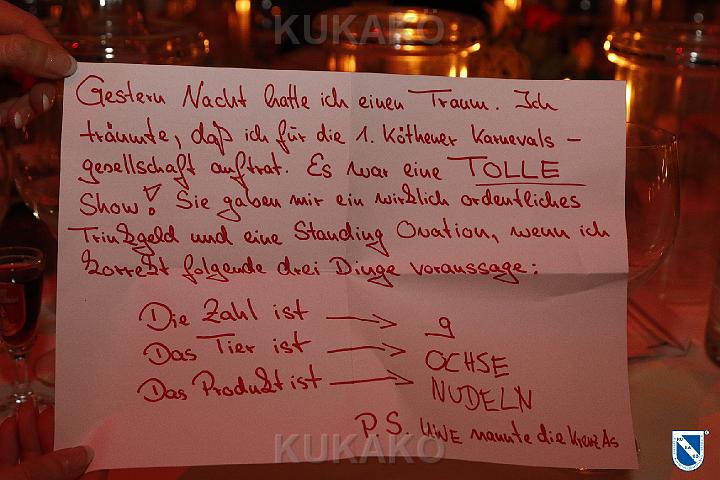 KUKAKÖ
Gestern Nacht hatte ich einen Traum. Ich
träumte, daß ich für die 1. Köthener Karnevals-
gesellschaft auftrat. Es war eine TOLLE
Show! Sie gaben mir ein wirklich ordentliches
Trinkgeld und eine Standing Ovation, wenn ich
korrekt folgende drei Dinge voraussage:
Die Zahl ist → 9
Das Tier ist → OCHSE
Das Produkt ist → NUDELN
P.S. UWE nannte die Kreuz As
KUKAKÖ